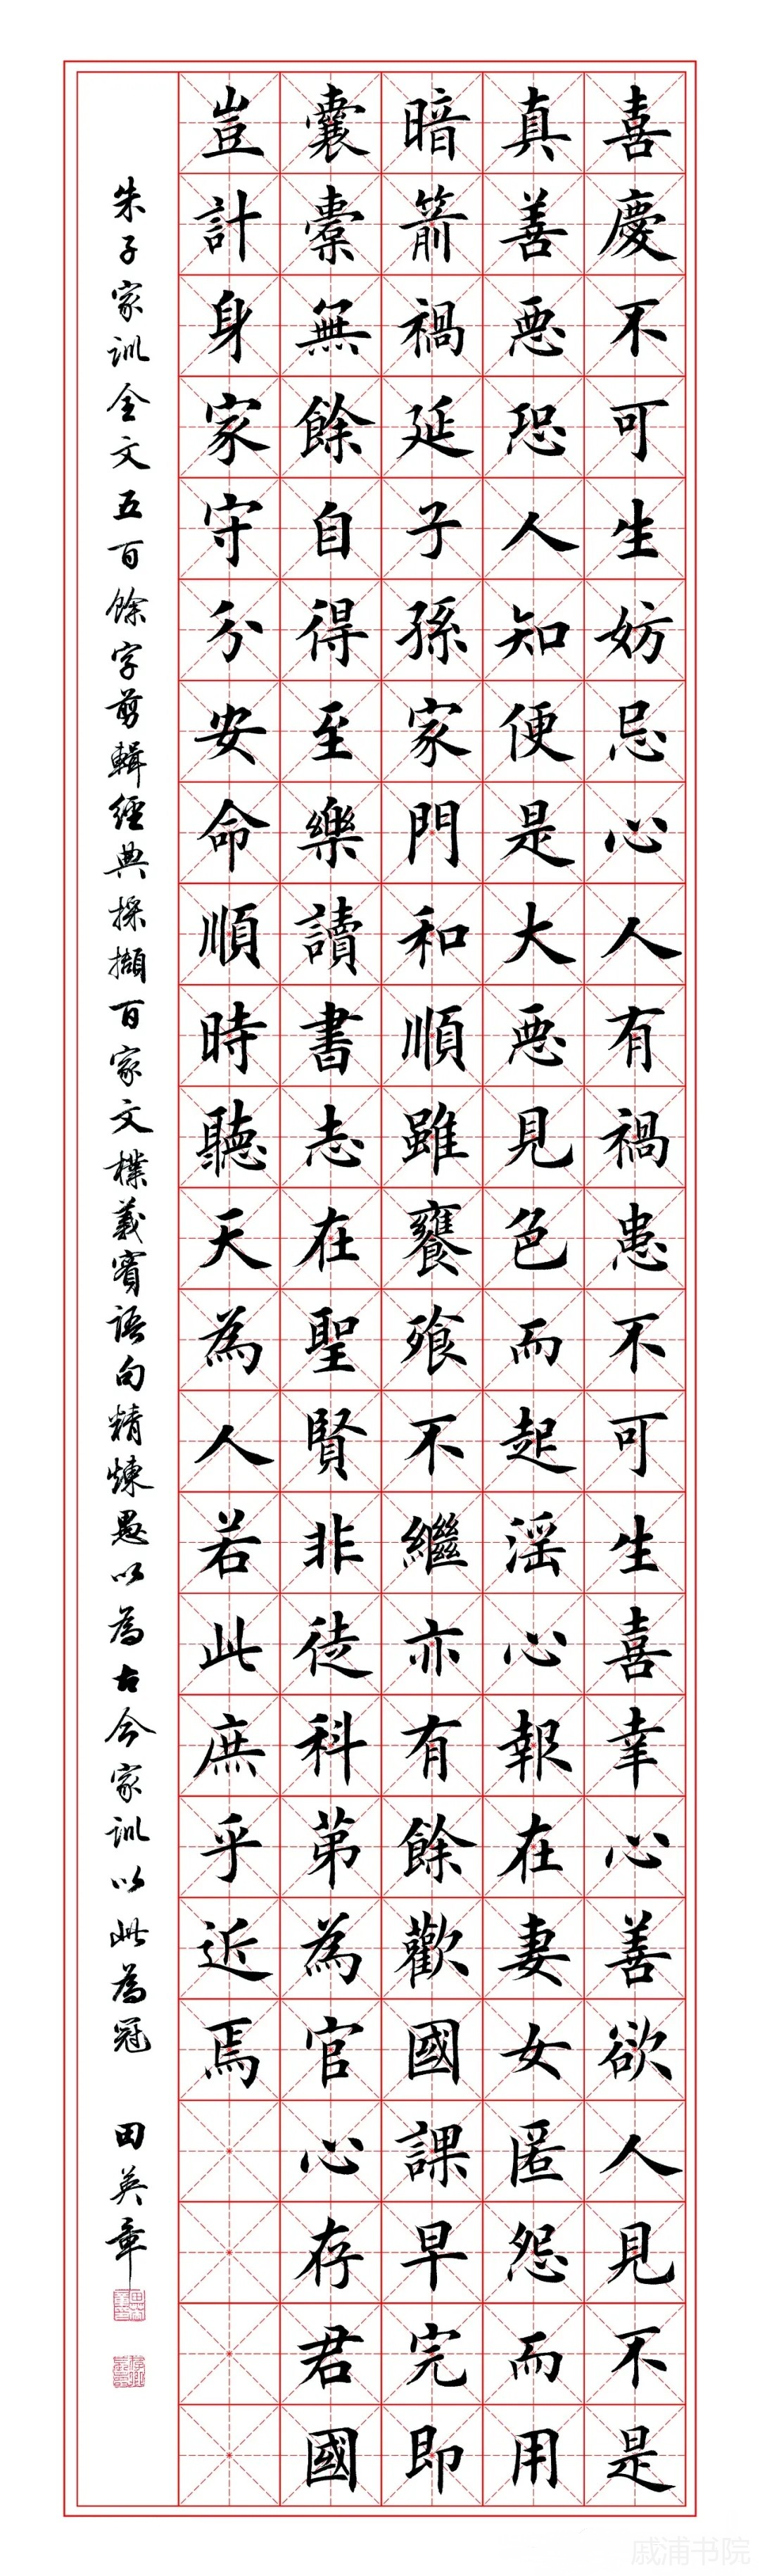 喜慶不可生妨忌心人有禍患不可生喜幸心善欲人見不是
真善恶恐人知便是大恶見色而起淫心報在妻女匿怨而用
暗箭禍延子孫家門和順雖饔飧不繼亦有餘歡國課早完即
囊橐無餘自得至樂讀書志在聖賢非徒科第為官心存君國
豈計身家守分安命順時聽天為人若此庶乎近焉
朱子家訓全文五百餘字剪輯經典採擷百家文樸義賓語句精煉愚以為古今家訓以此為冠 田英章
戚浦书院